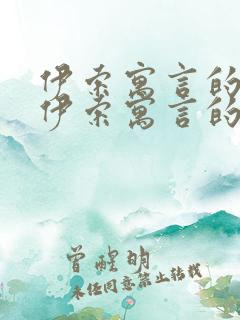 伊索寓言的
伊索寓言的
曾醒明
未经同意禁止转载